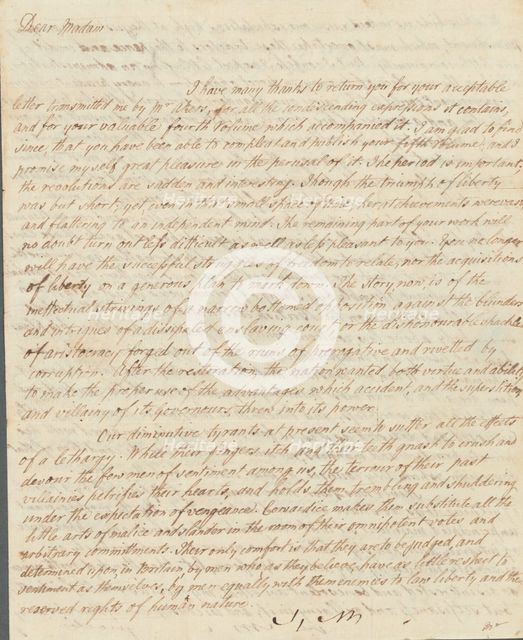 Dear Madam
I have many thanks to return you for your acceptable
letter transmitted me by Mr. Akers, for all the condescending expressions it contains,
and for your valuable fourth volume which accompanied it. I am glad to find
since, that you have been able to compleat and publish your fifth volume, and I
promise myself great pleasure in the perusal of it. The period is important,
the revolutions are sudden and interesting. Though the triumph of liberty
was but short, yet even in that small space of time her atchievements were vast
and flattering to an independent mind. The remaining part of your work will
no doubt turn out less difficult as well as less pleasant to you. You no longer
will have the successful struggles of freedom to relate, nor the acquisitions
of liberty on a generous plan to mark down. The story now is of the
ineffectual strivings of a narrow bottomed opposition against the
and intrigues of a dissipated enslaving court, or the dishonourable shackles
of aristocracy forged out of the ruins of prerogative and rivetted by
corruption. After the restoration the nation wanted both virtue and ability
to make the proper use of the advantages which accident, and the superstition
and villainy of its governours, threw into its power.
Our diminutive tyrants at present seem to suffer all the effects
of a lethargy. While their fingers itch and their teeth gnash to crush and
devour the few men of sentiment among us, the terrour of their past
villainies petrifies their hearts, and holds them trembling and shuddering
under the expectation of vengeance. Cowardice makes them substitute all the
little arts of malice and slander in the room of their omnipotent votes and
arbitrary commitments. Their only comfort is that they are to be judged, and
determined upon in Britain, by men who as they believe, have as little respect to
sentiment as themselves, by men equally with them enemies to law liberty and the
reserved rights of human nature.
Heritage
Heritage
Heritage
Heritage
Heritage
Heritage
C